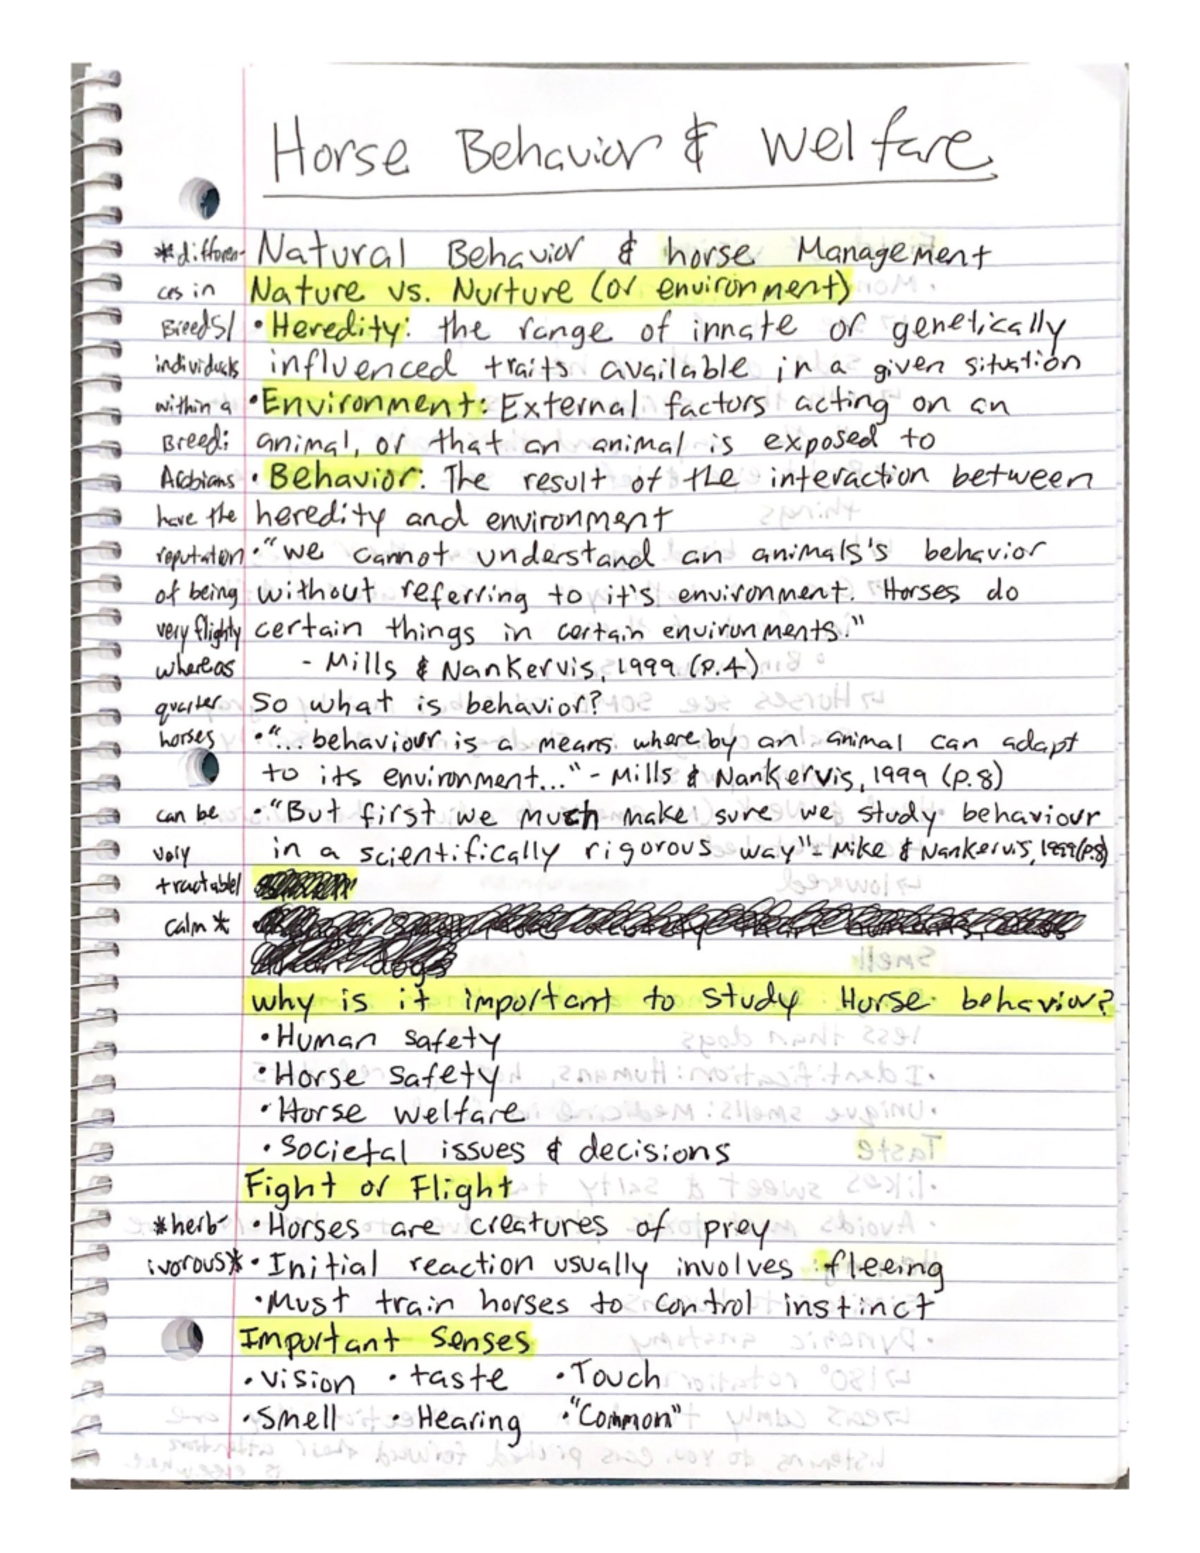 Horse Behavior & Welfare
*differen- Natural Behavior & horse Management
ces in Nature vs. Nurture (or environment)
Breeds/ • Heredity: the range of innate or genetically
individuals influenced traits available in a given situation
within a • Environment: External factors acting on an
Breed: animal, or that an animal is exposed to
Arabians • Behavior: The result of the interaction between
have the heredity and environment
reputation • "we cannot understand an animals's behavior
of being without referring to it's environment. Horses do
very flighty certain things in certain environments."
whereas - Mills & Nankervis, 1999 (p.4)
quarter So what is behavior?
horses • "... behaviour is a means whereby an animal can adapt
to its environment..." - Mills & Nankervis, 1999 (p.8)
can be • "But first we much make sure we study behaviour
very in a scientifically rigorous way" - Mike & Nankervis, 1999(p.8)
tractable/
calm *
dogs
why is it important to study Horse behavior?
• Human safety
• Horse safety
• Horse welfare
• Societal issues & decisions
Fight or Flight
*herb- • Horses are creatures of prey
ivorous* • Initial reaction usually involves : fleeing
• Must train horses to control instinct
Important Senses
• vision • taste • Touch
• Smell • Hearing • "Common"